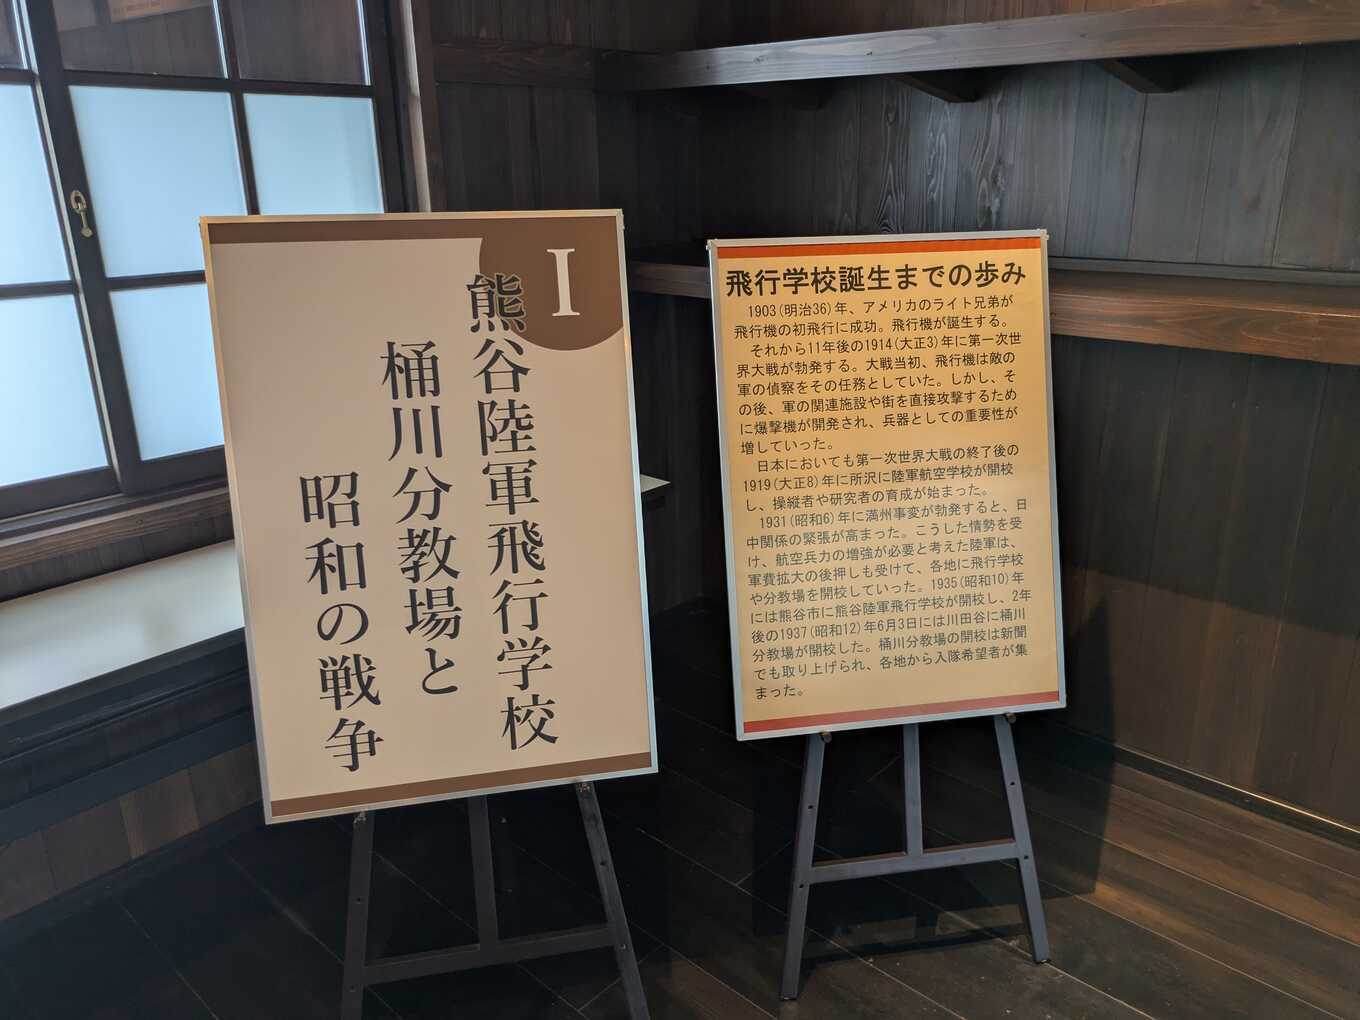 I
熊谷陸軍飛行学校
桶川分教場と
昭和の戦争
飛行学校誕生までの歩み
1903(明治36)年、アメリカのライト兄弟が
飛行機の初飛行に成功。飛行機が誕生する。
それから11年後の1914(大正3)年に第一次世
界大戦が勃発する。大戦当初、飛行機は敵の
軍の偵察をその任務としていた。しかし、そ
の後、軍の関連施設や街を直接攻撃するため
に爆撃機が開発され、兵器としての重要性が
増していった。
日本においても第一次世界大戦の終了後の
1919(大正8)年に所沢に陸軍航空学校が開校
し、操縦者や研究者の育成が始まった。
1931(昭和6)年に満州事変が勃発すると、日
中関係の緊張が高まった。こうした情勢を受
け、航空兵力の増強が必要と考えた陸軍は、
軍費拡大の後押しも受けて、各地に飛行学校
や分教場を開校していった。1935(昭和10)年
には熊谷市に熊谷陸軍飛行学校が開校し、2年
後の1937(昭和12)年6月3日には川田谷に桶川
分教場が開校した。桶川分教場の開校は新聞
でも取り上げられ、各地から入隊希望者が集
まった。